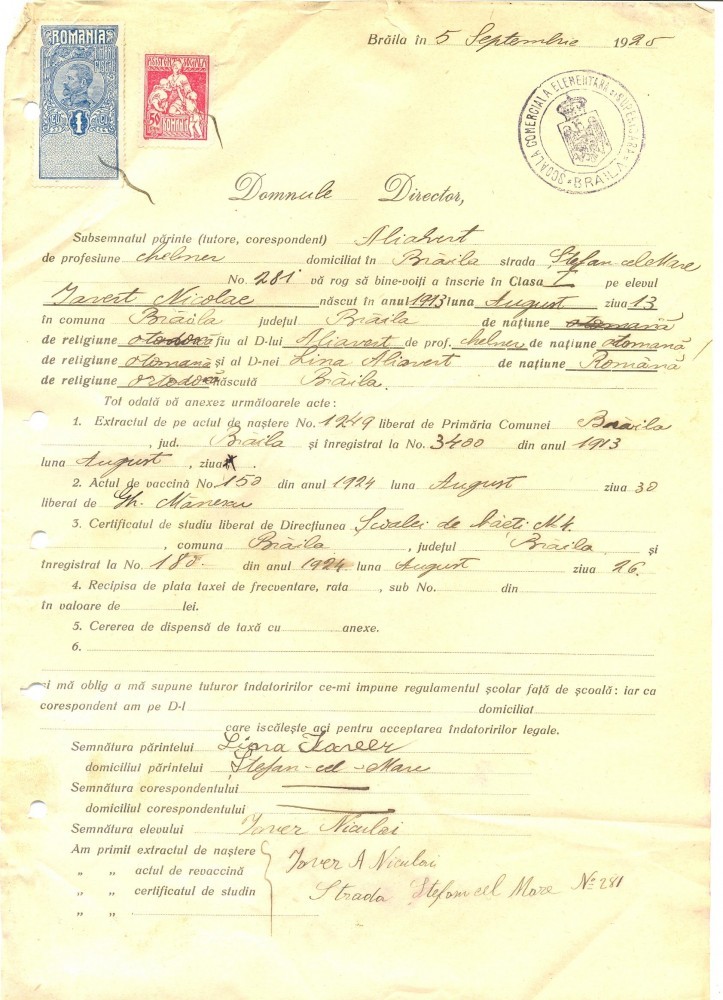 ROMANIA
1
ASISTENTA SOCIALA
50
ROMANIA
Brăila în 5 Septembrie 1925
ȘCOALA COMERCIALA ELEMENTARA ȘI SUPERIOARA
BRAILA
Domnule Director,
Subsemnatul părinte (tutore, corespondent) Aliavert
de profesiune chelner domiciliat în Brăila strada Ștefan cel Mare
No. 281 vă rog să bine-voiți a înscrie în Clasa I pe elevul
Javert Nicolae născut în anul 1913 luna August ziua 13
în comuna Brăila județul Brăila de națiune otomană
de religiune otodoxă fiu al D-lui Aliavert de prof. chelner de națiune otomană
de religiune otomană și al D-nei Lina Aliavert de națiune Română
de religiune ortodoxă născută Brăila.
Tot odată vă anexez următoarele acte :
1. Extractul de pe actul de naștere No. 1249 liberat de Primăria Comunei Brăila
, jud. Brăila și înregistrat la No. 3400 din anul 1913
luna August , ziua .
2. Actul de vaccină No. 150 din anul 1924 luna August ziua 30
liberat de Gh. Mănescu
3. Certificatul de studiu liberat de Direcțiunea Școalei de băeți No 4.
, comuna Brăila , județul Brăila și
înregistrat la No. 180. din anul 1924 luna August ziua 26.
4. Recipisa de plata taxei de frecventare, rata , sub No. din
în valoare de lei.
5. Cererea de dispensă de taxă cu anexe.
6.
și mă oblig a mă supune tuturor îndatoririlor ce-mi impune regulamentul școlar față de școală : iar ca
corespondent am pe D-l domiciliat
care iscălește aci pentru acceptarea îndatoririlor legale.
Semnătura părintelui Lina
domiciliul părintelui Ștefan-cel-Mare
Semnătura corespondentului
domiciliul corespondentului
Semnătura elevului Javer Niculai
Am primit extractul de naștere Javer A Niculai
„ „ actul de revaccină
„ „ certificatul de studin Strada Ștefan cel Mare No 281
„ „